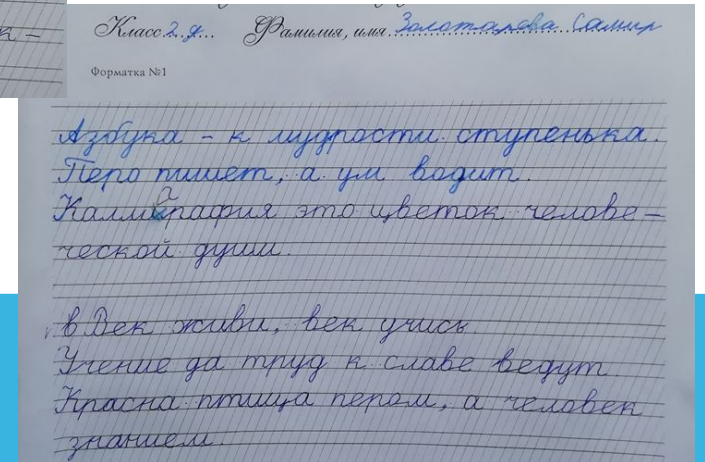 к –
Класс 2 д. Фамилия, имя Золотарева Самир
Форматка №1
Азбука - к мудрости ступенька.
Перо пишет, а ум водит.
Каллиграфия это цветок челове-
ческой души.
в Век живи, век учись
Учение да труд к славе ведут
Красна птица пером, а человек
знанием.